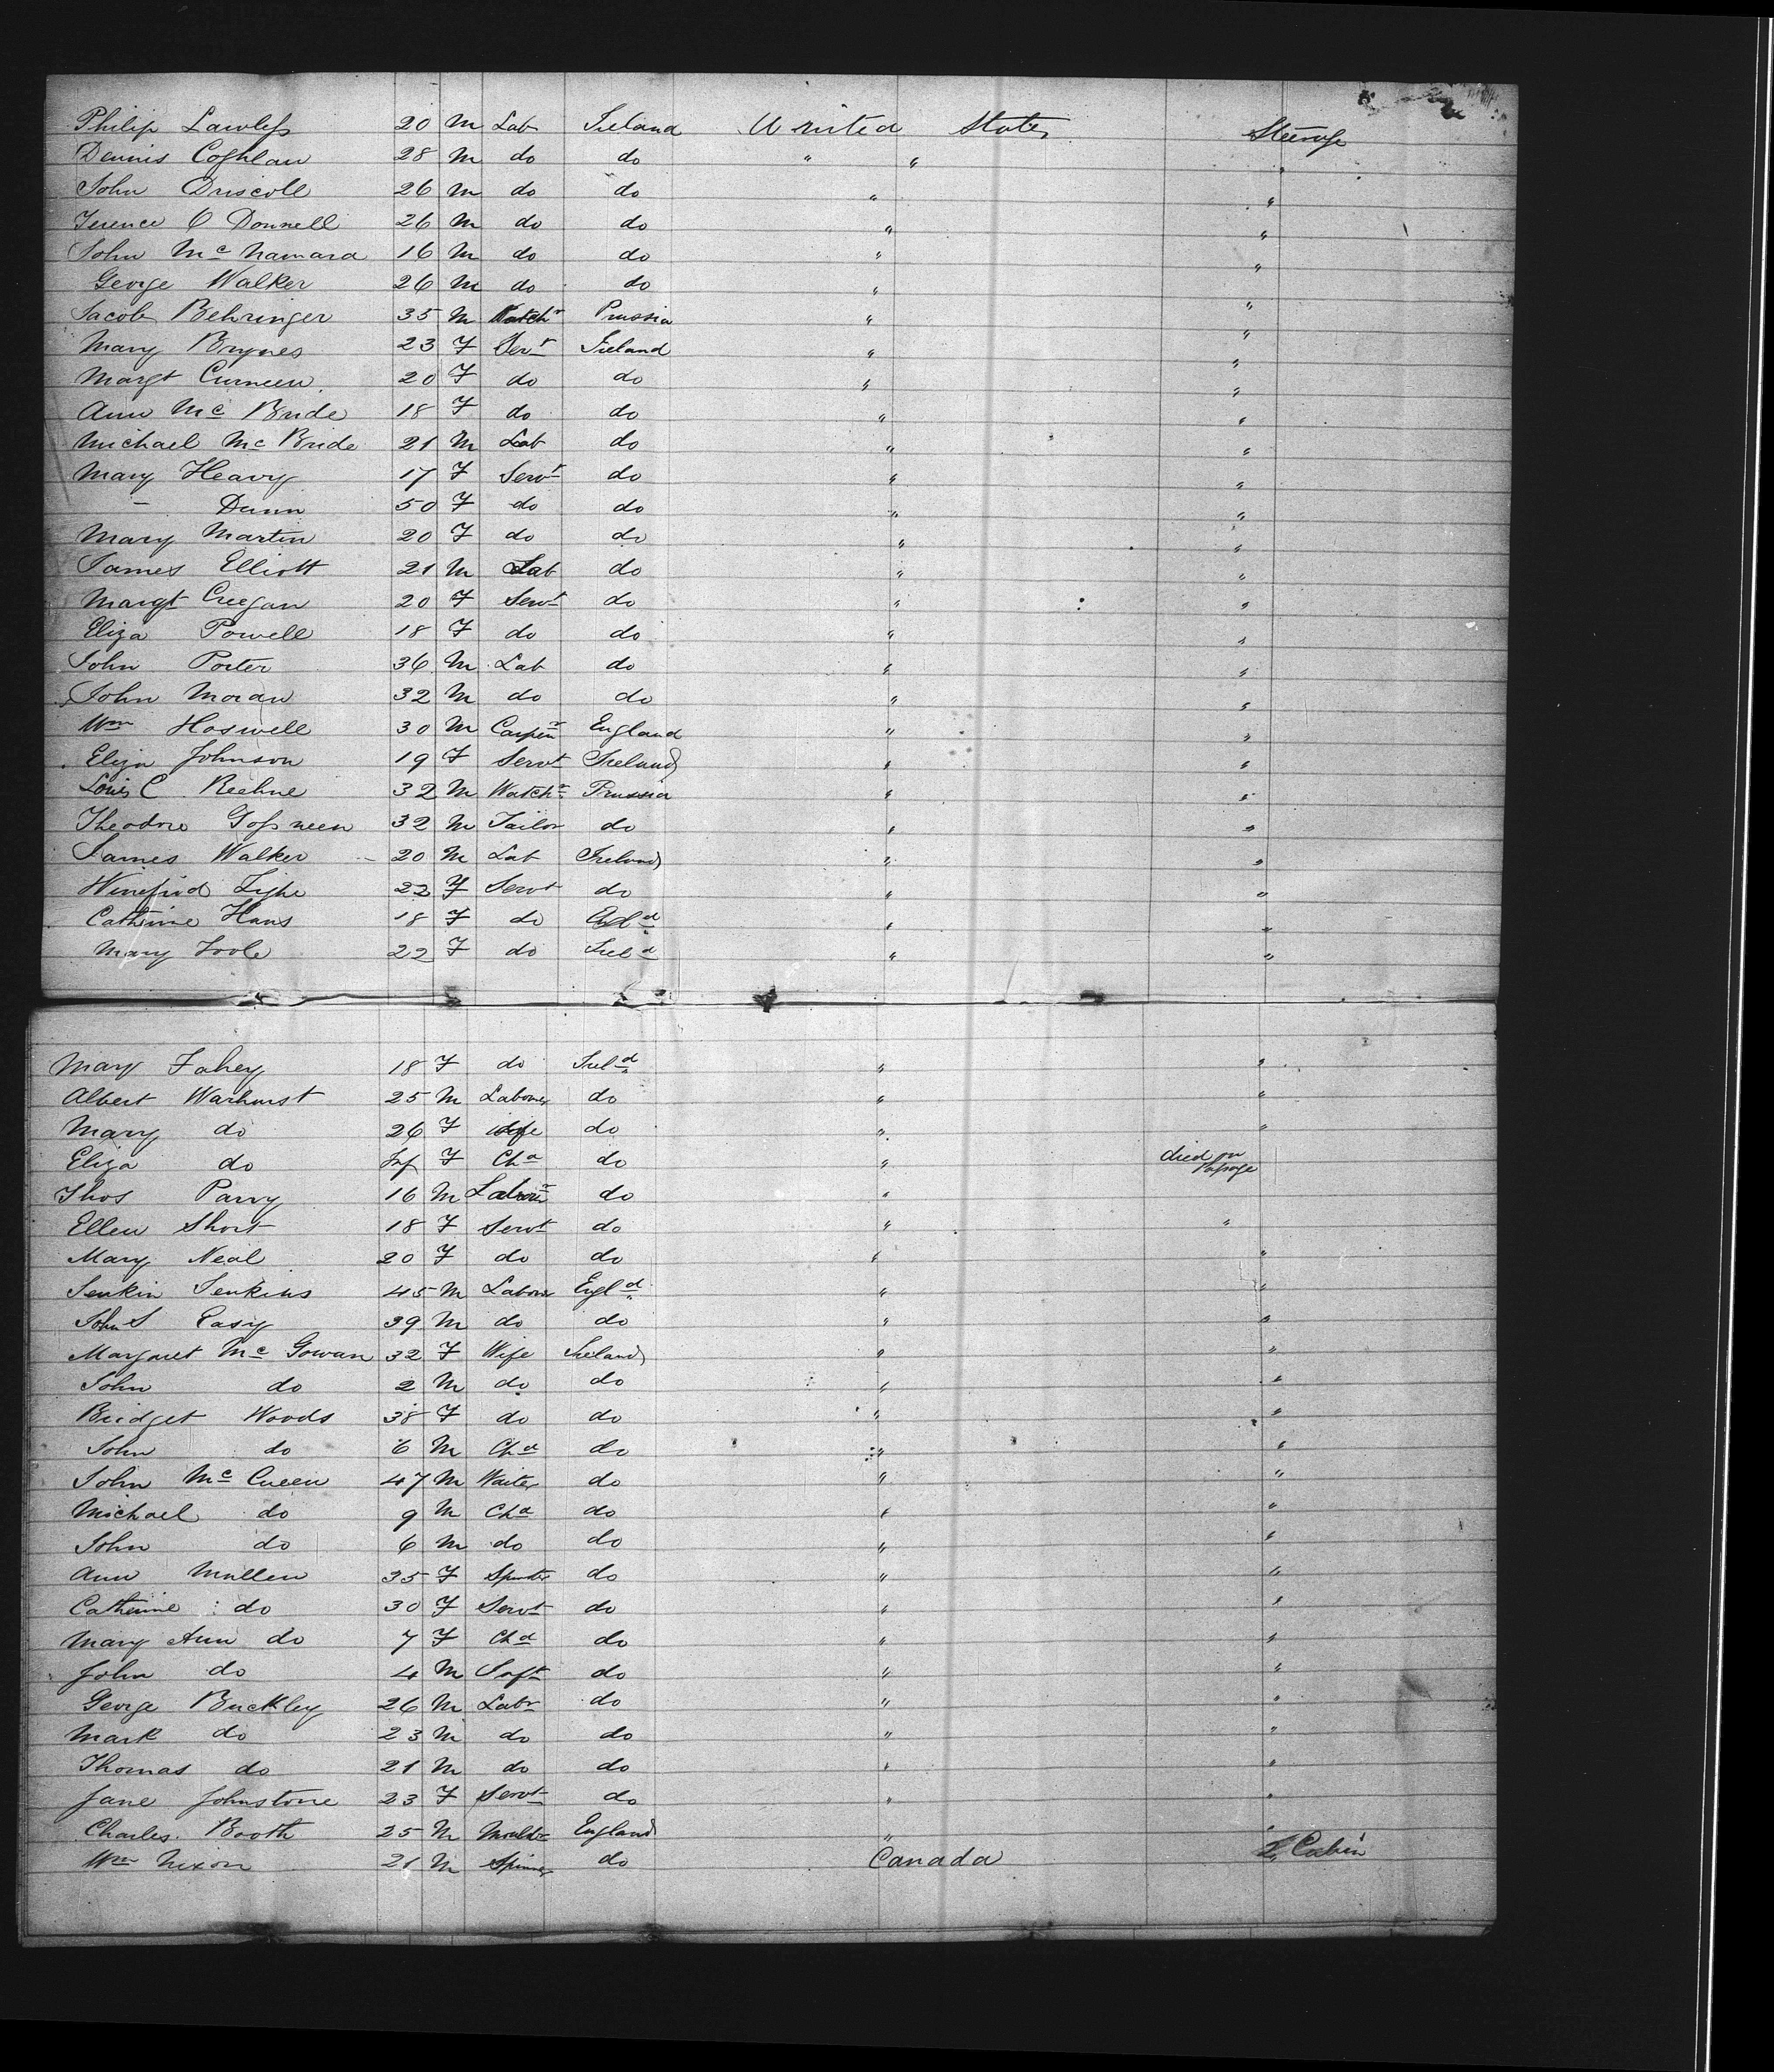 Philip Lawless 20 M Lab Ireland United States Steerage
Dennis Coghlan 28 M do do " " "
John Driscoll 26 M do do " "
Terence O Donnell 26 M do do " "
John Mc Namara 16 M do do " "
George Walker 26 M do do " "
Jacob Behringer 35 M Watchr Prussia " "
Mary Brynes 23 F Servt Ireland " "
Margt Curneen 20 F do do " "
Ann Mc Bride 18 F do do " "
Michael Mc Bride 21 M Lab do " "
Mary Heavy 17 F Servt do " "
– Dunn 50 F do do " "
Mary Martin 20 F do do " "
James Elliott 21 M Lab do " "
Margt Creegan 20 F Servt do " "
Eliza Powell 18 F do do " "
John Porter 36 M Lab do " "
John Moran 32 M do do " "
Wm Hoswell 30 M Carpenr England " "
Eliza Johnson 19 F Servt Ireland " "
Louis C Reehne 32 M Watchr Prussia " "
Theodore 32 M Tailor do " "
James Walker 20 M Lab Ireland " "
Winefrid Tighe 22 F Servt do " "
Catherine Hans 18 F do Engld " "
Mary Toole 22 F do Ireld " "
Mary Fahey 18 F do Ireld " "
Albert Warhurst 25 M Laborer do " "
Mary do 26 F wife do " "
Eliza do Inf F Chd do " died on Passage
Thos Parry 16 M Labourr do "
Ellen Short 18 F Servt do " "
Mary Neal 20 F do do " "
Jenkin Jenkins 45 M Laborer Engld " "
John S Easy 39 M do do " "
Margaret Mc Gowan 32 F Wife Ireland " "
John do 2 M do do " "
Bridget Woods 38 F do do " "
John do 6 M Chd do " "
John Mc Cueen 47 M Waiter do " "
Michael do 9 M Chd do " "
John do 6 M do do " "
Ann Mullen 35 F Spinster do " "
Catherine do 30 F Servt do " "
Mary Ann do 7 F Chd do " "
John do 4 M Inft do " "
George Buckley 26 M Labr do " "
Mark do 23 M do do " "
Thomas do 21 M do do " "
Jane Johnstone 23 F Servt do " "
Charles Booth 25 M Moulder England " "
Wm Nixon 21 M Spinner do Canada 2" Cabin